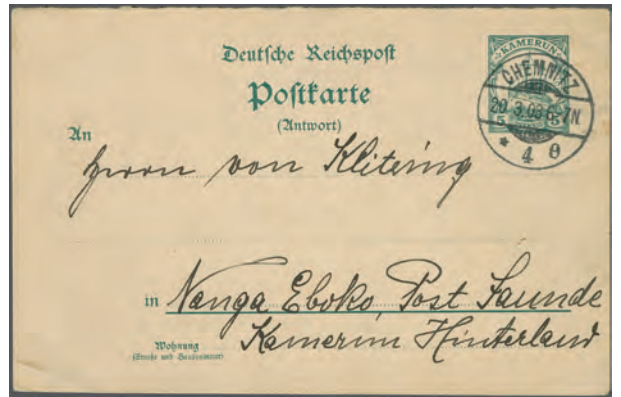 Deutsche Reichspost
KAMERUN
Postkarte
(Antwort)
CHEMNITZ
20.3.03 6-7N
* 4 θ
5
An
Herrn von Klitzing
in Nanga Eboko, Post Jaunde
Kamerun Hinterland
Wohnung
(Straße und Hausnummer)